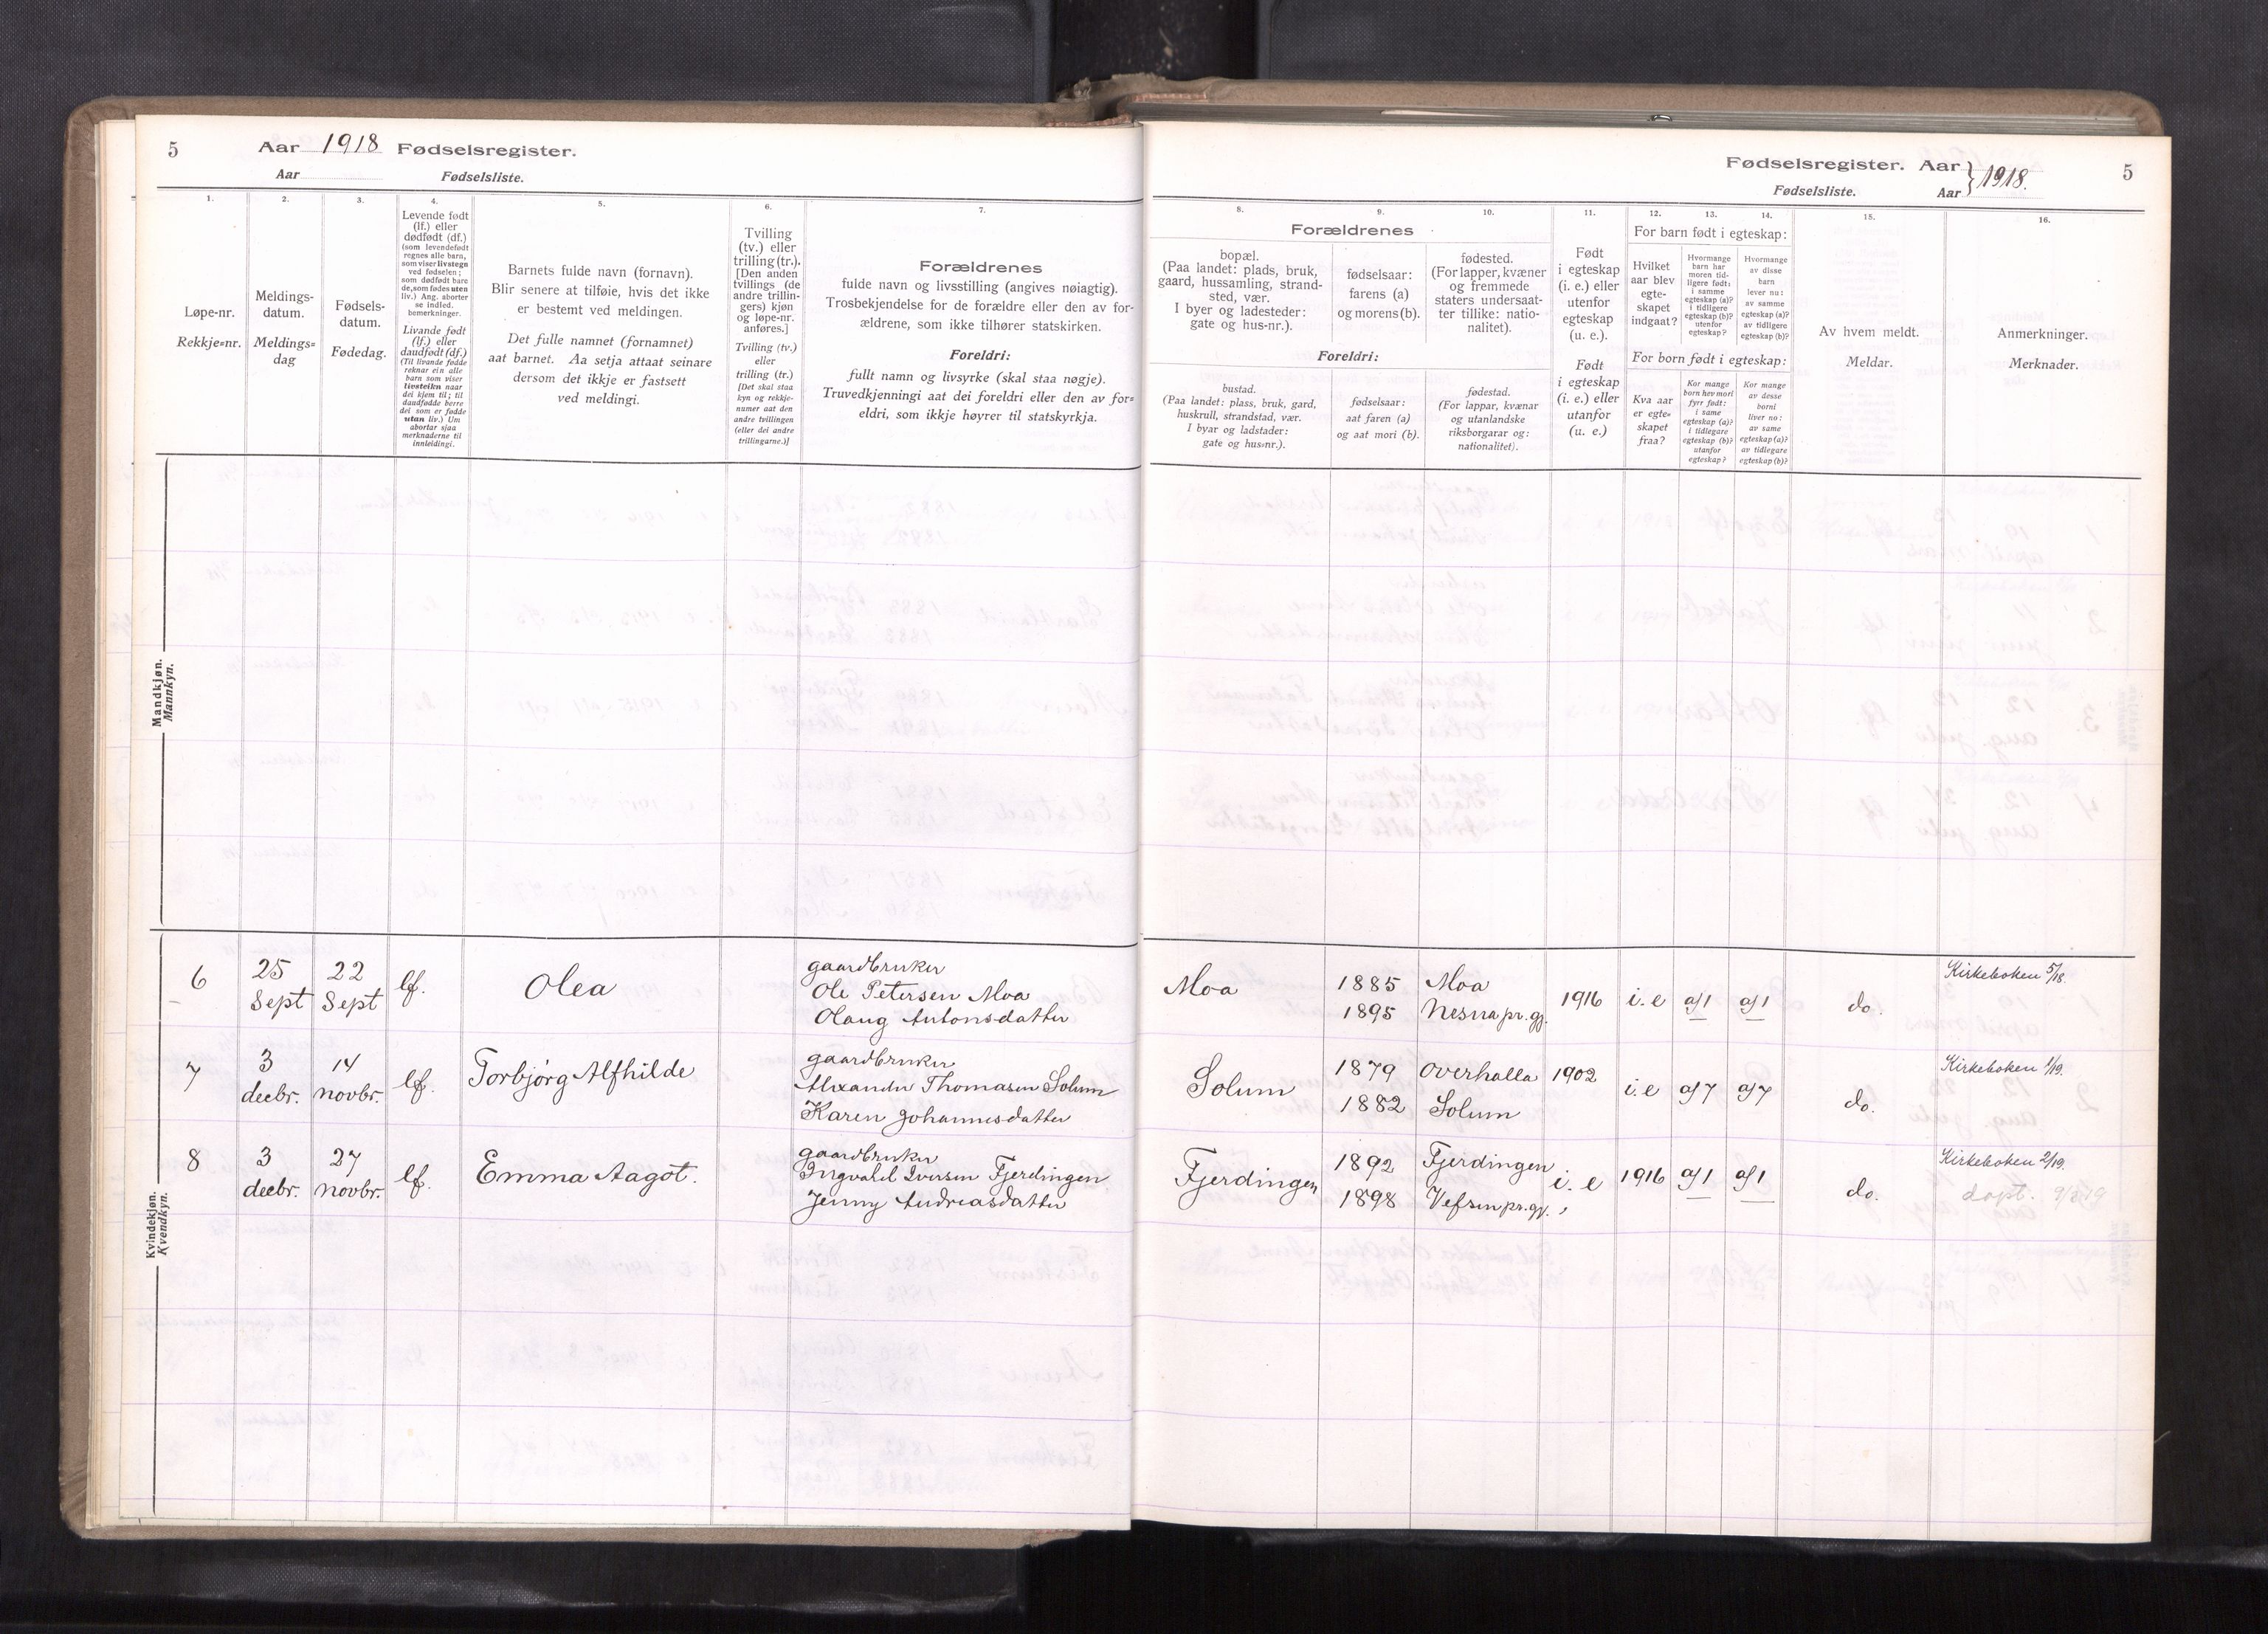 5 Aar 1918 Fødselsregister.
Aar Fødselsliste.
Fødselsregister. Aar } 1918. 5
Fødselsliste. Aar
1. 2. 3. 4. 5. 6. 7.
Løpe-nr.
Rekkje=nr.
Meldings-
datum.
Meldings=
dag
Fødsels-
datum.
Fødedag.
Levende født
(lf.) eller
dødfødt (df.)
(som levendefødt
regnes alle barn,
som viser livstegn
ved fødselen;
som dødfødt bare
de, som fødes uten
liv.) Ang. aborter
se indled.
bemerkninger.
Livande født
(lf.) eller
daudfødt (df.)
(Til livande fødde
reknar ein alle
barn som viser
livsteikn naar
dei kjem til; til
daudfødde berre
dei som er fødde
utan liv.) Um
abortar sjaa
merknaderne til
innleidingi.
Barnets fulde navn (fornavn).
Blir senere at tilføie, hvis det ikke
er bestemt ved meldingen.
Det fulle namnet (fornamnet)
aat barnet. Aa setja attaat seinare
dersom det ikkje er fastsett
ved meldingi.
Tvilling
(tv.) eller
trilling (tr.).
[Den anden
tvillings (de
andre trillin-
gers) kjøn
og løpe-nr.
anføres.]
Tvilling (tv.)
eller
trilling (tr.)
[Det skal staa
kyn og rekkje-
numer aat den
andre tvillingen
(eller dei andre
trillingarne.)]
Forældrenes
fulde navn og livsstilling (angives nøiagtig).
Trosbekjendelse for de forældre eller den av for-
ældrene, som ikke tilhører statskirken.
Foreldri:
fullt namn og livsyrke (skal staa nøgje).
Truvedkjenningi aat dei foreldri eller den av for=
eldri, som ikkje høyrer til statskyrkja.
8. 9. 10. 11. 12. 13. 14. 15. 16.
Forældrenes
bopæl.
(Paa landet: plads, bruk,
gaard, hussamling, strand-
sted, vær.
I byer og ladesteder:
gate og hus-nr.).
fødselsaar:
farens (a)
og morens (b).
fødested.
(For lapper, kvæner
og fremmede
staters undersaat-
ter tillike: natio-
nalitet).
Foreldri:
bustad.
(Paa landet: plass, bruk, gard,
huskrull, strandstad, vær.
I byar og ladstader:
gate og hus=nr.).
fødselsaar:
aat faren (a)
og aat mori (b).
fødestad.
(For lappar, kvænar
og utanlandske
riksborgarar og:
nationalitet).
Født
i egteskap
(i. e.) eller
utenfor
egteskap
(u. e.).
Født
i egteskap
(i. e.) eller
utanfor
(u. e.)
For barn født i egteskap:
Hvilket
aar blev
egte-
skapet
indgaat?
Hvormange
barn har
moren tid-
ligere født:
i samme
egteskap (a)?
i tidligere
egteskap (b)?
utenfor
egteskap?
Hvormange
av disse
barn
lever nu:
av samme
egteskap (a)?
av tidligere
egteskap (b)?
For born født i egteskap:
Kva aar
er egte=
skapet
fraa?
Kor mange
born hev mori
fyrr født:
i same
egteskap (a)?
i tidlegare
egteskap (b)?
utanfor
egteskap?
Kor mange
av desse
borni
liver no:
av same
egteskap (a)?
av tidlegare
egteskap (b)?
Av hvem meldt.
Meldar.
Anmerkninger.
Merknader.
Mandkjøn.
Mannkyn.
Kvindekjøn.
Kvendkyn.
6 25 Sept 22 Sept lf. Olea
gaardbruker
Ole Petersen Moa
Olaug Antonsdatter
Moa 1885 Moa
1895 Nesna pr.gj. 1916 i. e a/1 a/1 do. Kirkeboken 5/18.
7 3 decbr. 14 novbr. lf. Torbjørg Alfhilde
gaardbruker
Alexander Thomasen Solum
Karen Johannesdatter
Solum 1879 Overhalla 1902 i. e a/7 a/7 do. Kirkeboken 1/19.
1882 Solum
8 3 decbr. 27 novbr. lf. Emma Aagot.
gaardbruker
Ingvahrd Iversen Fjerdingen
Jenny Andreasdatter
Fjerdingen 1892 Fjerdingen i. e 1916 a/1 a/1 do. Kirkeboken 2/19.
1898 Vefsen pr.gj. døpt.